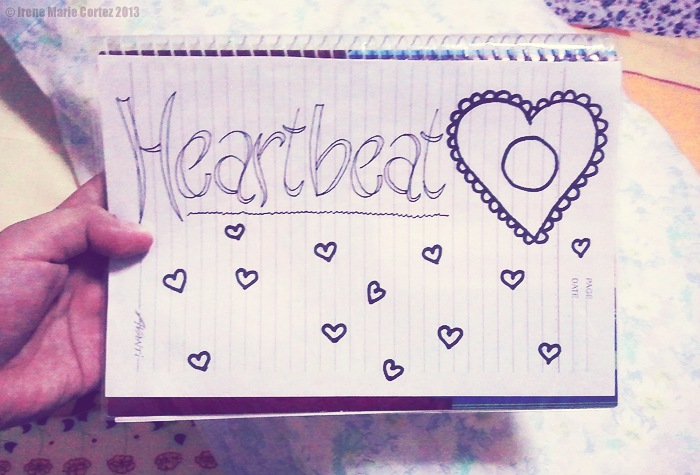 © Irene Marie Cortez 2013
Heartbeat
PAGE
DATE